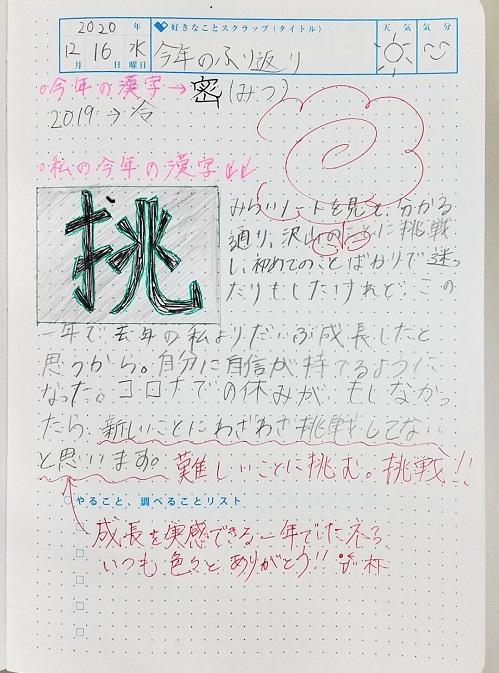 2020年
12月16日水曜日
好きなことスクラップ(タイトル)
今年のふり返り
天気
気分
○今年の漢字→密(みつ)
2019→令
○私の今年の漢字↓↓
挑
みらいノートを見て、分かる
通り、沢山のことに挑戦
し、初めてのことばかりで迷っ
たりもしたけれど、この
一年で、去年の私よりだいぶ成長したと
思うから。自分に自信が持てるように
なった。コロナでの休みが、もしなかっ
たら、新しいことにわざわざ挑戦してない
と思います。難しいことに挑む。挑戦!!
やること、調べることリスト
成長を実感できる一年でしたネ。
いつも色々とありがとう!!